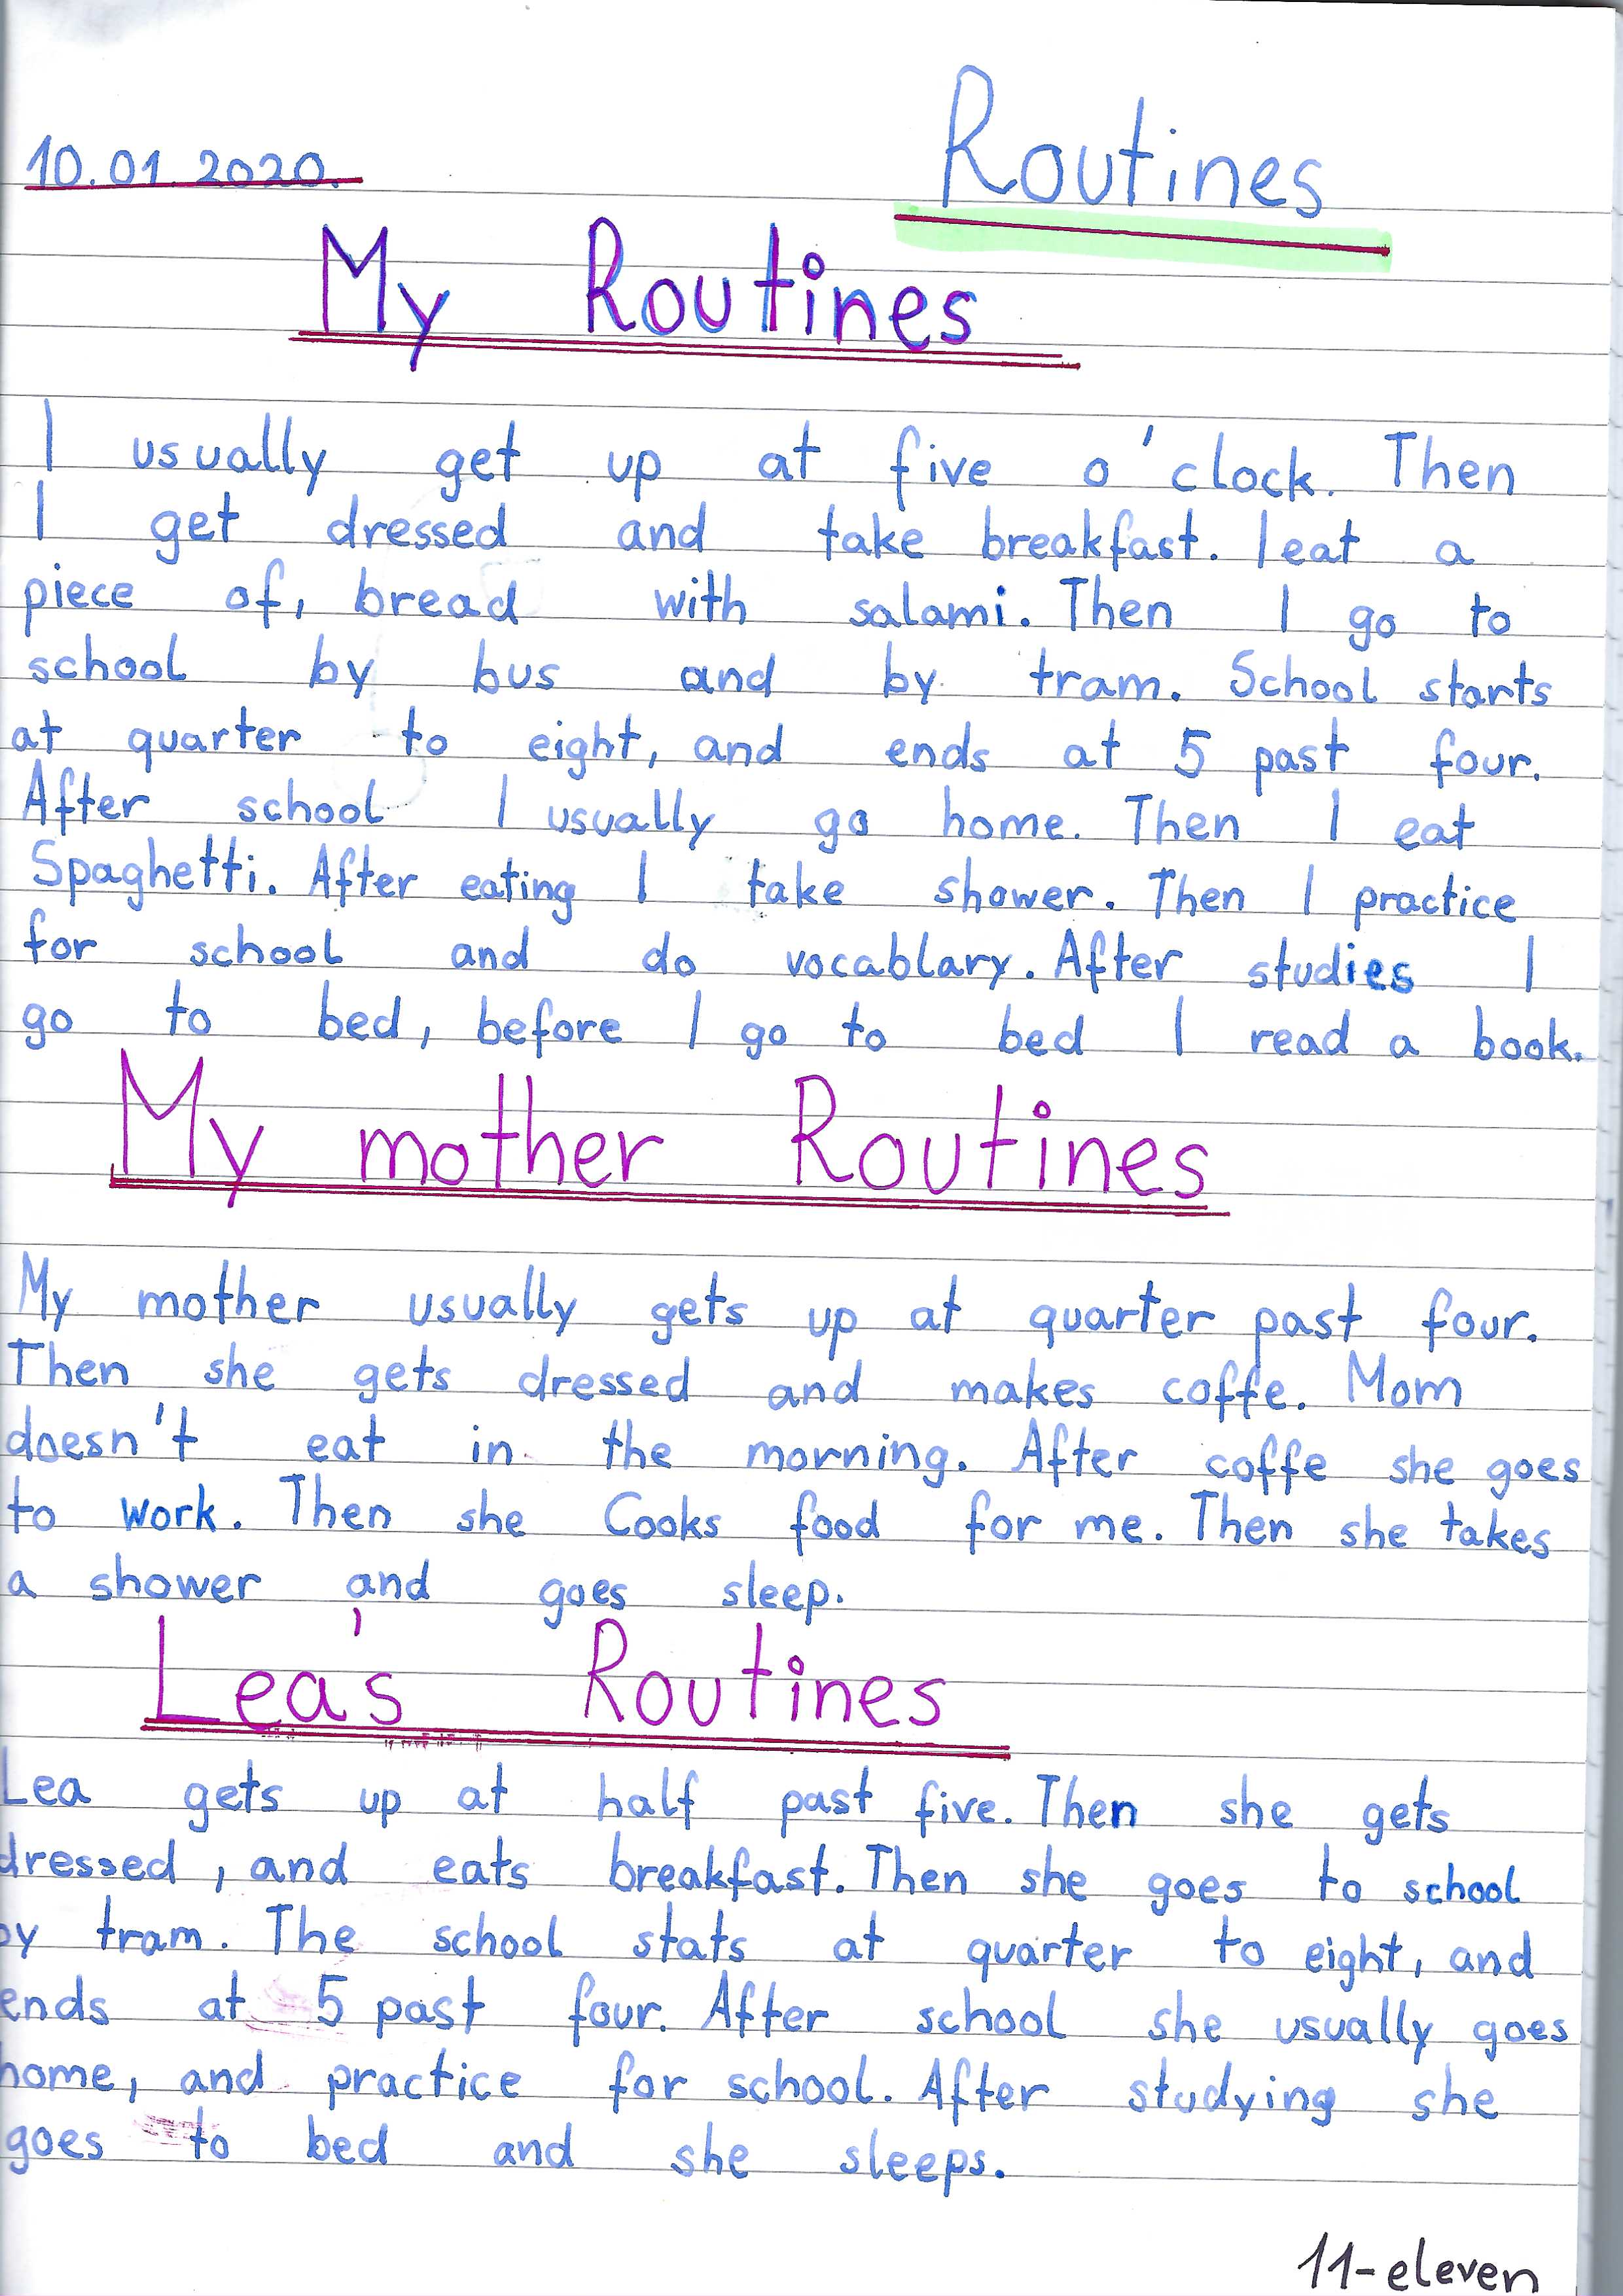 10.01.2020.
Routines
My Routines
I usually get up at five o'clock. Then
I get dressed and take breakfast. I eat a
piece of, bread with salami. Then I go to
school by bus and by tram. School starts
at quarter to eight, and ends at 5 past four.
After school I usually go home. Then I eat
Spaghetti. After eating I take shower. Then I practice
for school and do vocablary. After studies I
go to bed, before I go to bed I read a book.
My mother Routines
My mother usually gets up at quarter past four.
Then she gets dressed and makes coffe. Mom
doesn't eat in the morning. After coffe she goes
to work. Then she Cooks food for me. Then she takes
a shower and goes sleep.
Lea's Routines
Lea gets up at half past five. Then she gets
dressed, and eats breakfast. Then she goes to school
by tram. The school stats at quarter to eight, and
ends at 5 past four. After school she usually goes
home, and practice for school. After studying she
goes to bed and she sleeps.
11-eleven